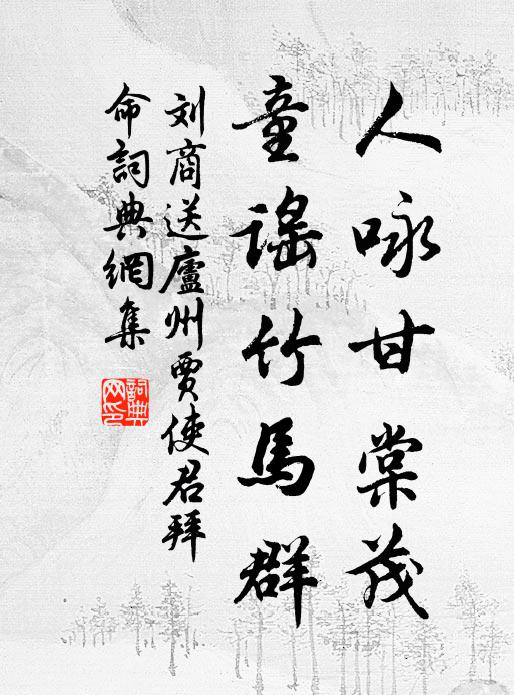 人咏甘棠茂
童謠竹馬群
刘商送廬州賈使君拜
命詞典網集
詞典
网印